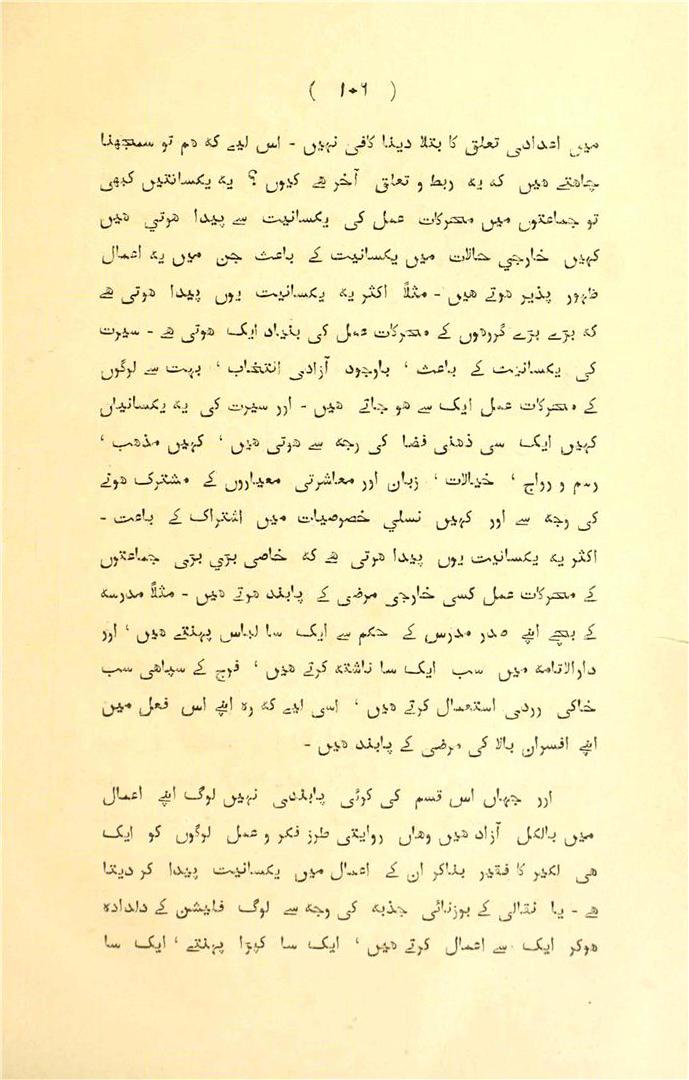 ( ۱۰۶ )
میں اعدادی تعلق کا بتلا دینا کافی نہیں - اس لیے کہ ہم تو سمجھنا
چاہتے ہیں کہ یہ ربط و تعلق آخر ہے کیوں ؟ یہ یکسانتیں کبھی
تو جماعتوں میں محرکات عمل کی یکسانیت سے پیدا ہوتی ہیں
کہیں خارجی حالات میں یکسانیت کے باعث جن میں یہ اعمال
ظہور پذیر ہوتے ہیں - مثلاً اکثر یہ یکسانیت یوں پیدا ہوتی ہے
کہ بڑے بڑے گروہوں کے محرکات عمل کی بنیاد ایک ہوتی ہے - سیرت
کی یکسانیت کے باعث ' باوجود آزادی انتخاب ' بہت سے لوگوں
کے محرکات عمل ایک سے ہو جاتے ہیں - اور سیرت کی یہ یکسانیاں
کہیں ایک سی ذہنی فضا کی وجہ سے ہوتی ہیں ' کہیں مذہب '
رسم و رواج ' خیالات ' زبان اور معاشرتی معیاروں کے مشترک ہونے
کی وجہ سے اور کہیں نسلی خصوصیات میں اشتراک کے باعث -
اکثر یہ یکسانیت یوں پیدا ہوتی ہے کہ خاصی بڑی بڑی جماعتوں
کے محرکات عمل کسی خارجی مرضی کے پابند ہوتے ہیں - مثلاً مدرسہ
کے بچے اپنے صدر مدرس کے حکم سے ایک سا لباس پہنتے ہیں ' اور
دارالاقامہ میں سب ایک سا ناشتہ کرتے ہیں ' فوج کے سپاہی سب
خاکی وردی استعمال کرتے ہیں ' اسی لیے کہ وہ اپنے اس فعل میں
اپنے افسران بالا کی مرضی کے پابند ہیں -
اور جہاں اس قسم کی کوئی پابندی نہیں لوگ اپنے اعمال
میں بالکل آزاد ہیں وہاں روایتی طرز فکر و عمل لوگوں کو ایک
ہی لکیر کا فقیر بناکر ان کے اعمال میں یکسانیت پیدا کر دیتا
ہے - یا نقالی کے بوزنائی جذبہ کی وجہ سے لوگ فایشن کے دلدادہ
ہوکر ایک سے اعمال کرتے ہیں ' ایک سا کپڑا پہنتے ' ایک سا